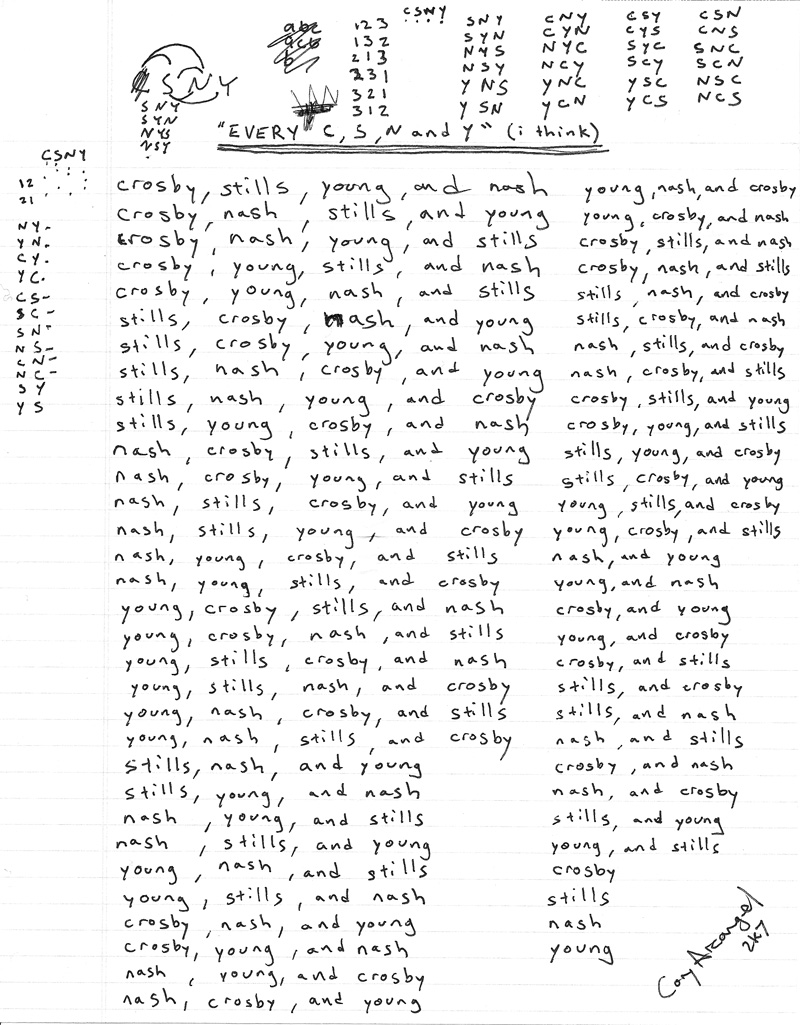 CSNY
abc
acb
b
123
132
213
231
321
312
SNY
SYN
NYS
NSY
YNS
YSN
CNY
CYN
NYC
NCY
YNC
YCN
CSY
CYS
SYC
SCY
YSC
YCS
CSN
CNS
SNC
SCN
NSC
NCS
SNY
SNY
SYN
NYS
NSY
"EVERY" C, S, N and Y" (i think)
CSNY
12
21
NY-
YN.
CY.
YC.
CS-
SC-
SN-
NS-
CN-
NC-
SY
YS
crosby, stills, young, and nash
crosby, nash, stills, and young
crosby, nash, young, and stills
crosby, young, stills, and nash
crosby, young, nash, and stills
stills, crosby, nash, and young
stills, crosby, young, and nash
stills, nash, crosby, and young
stills, nash, young, and crosby
stills, young, crosby, and nash
nash, crosby, stills, and young
nash, crosby, young, and stills
nash, stills, crosby, and young
nash, stills, young, and crosby
nash, young, crosby, and stills
nash, young, stills, and crosby
young, crosby, stills, and nash
young, crosby, nash, and stills
young, stills, crosby, and nash
young, stills, nash, and crosby
young, nash, crosby, and stills
young, nash, stills, and crosby
stills, nash, and young
stills, young, and nash
nash, young, and stills
nash, stills, and young
young, nash, and stills
young, stills, and nash
crosby, nash, and young
crosby, young, and nash
nash, young, and crosby
nash, crosby, and young
young, nash, and crosby
young, crosby, and nash
crosby, stills, and nash
crosby, nash, and stills
stills, nash, and crosby
stills, crosby, and nash
nash, stills, and crosby
nash, crosby, and stills
crosby, stills, and young
crosby, young, and stills
stills, young, and crosby
stills, crosby, and young
young, stills, and crosby
young, crosby, and stills
nash, and young
young, and nash
crosby, and young
young, and crosby
crosby, and stills
stills, and crosby
stills, and nash
nash, and stills
crosby, and nash
nash, and crosby
stills, and young
young, and stills
crosby
stills
nash
young
Cory Arcangel
2k7